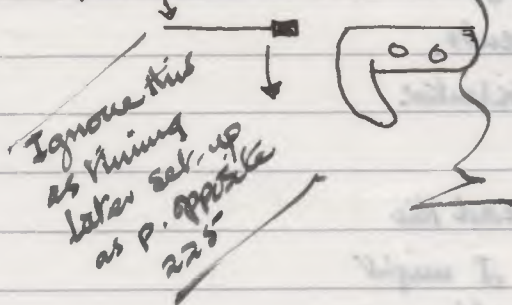 Ignore this
as timing
later set-up
as p. opposite
225